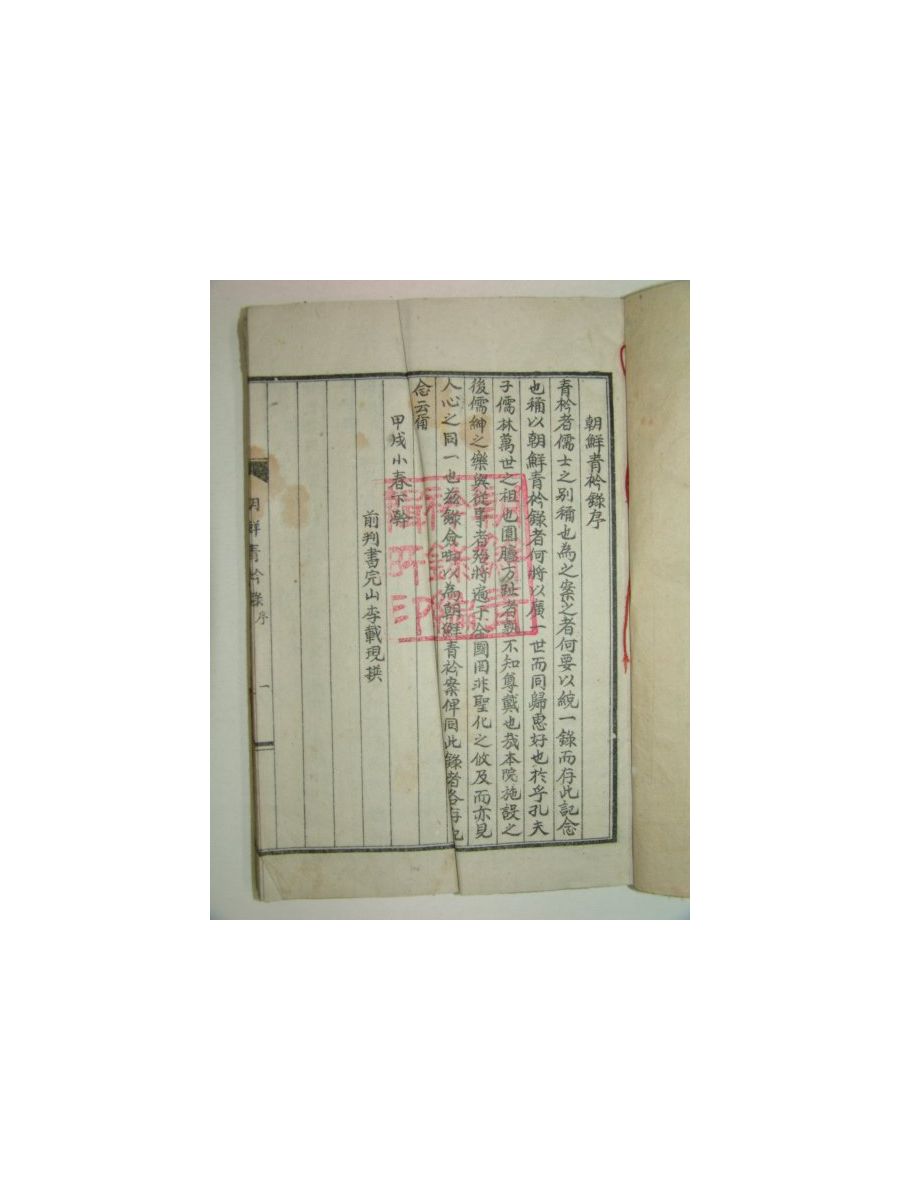 朝鮮青衿錄序
青衿者儒士之别稱也為之案之者何要以統一錄而存此記念
也稱以朝鮮青衿錄者何將以廣一世而同歸惠好也於乎孔夫
子儒林萬世之祖也圓臚方趾者孰不知尊戴也哉本院施設之
後儒紳之樂與從事者殆將遍于全國罔非聖化之攸及而亦見
人心之同一也茲錄僉以為朝鮮青衿案俾同此錄者各存記
念云爾
甲戍小春下澣
前判書完山李載現撰
朝鮮青衿錄 序 一